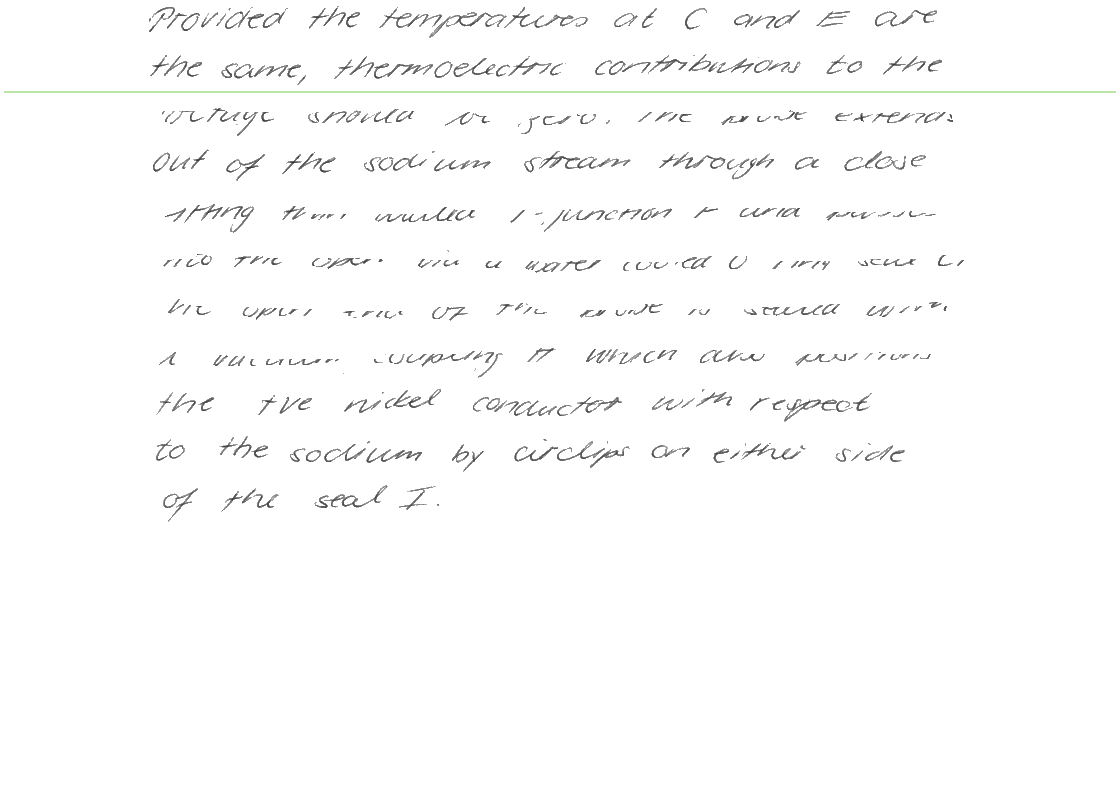 Provided the temperatures at C and E are
the same, thermoelectric contributions to the
voltage should be zero. The probe extends
out of the sodium stream through a close
fitting thin walled T-junction F and
into the open via a water cooled O ring seal G.
The open end of the probe is sealed with
a vacuum coupling H which also positions
the +ve nickel conductor with respect
to the sodium by circlips on either side
of the seal I.